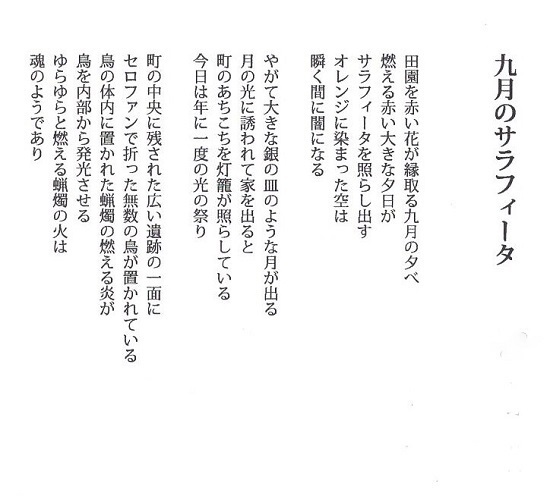 九月のサラフィータ
田園を赤い花が縁取る九月の夕べ
燃える赤い大きな夕日が
サラフィータを照らし出す
オレンジに染まった空は
瞬く間に闇になる
やがて大きな銀の皿のような月が出る
月の光に誘われて家を出ると
町のあちこちを灯籠が照らしている
今日は年に一度の光の祭り
町の中央に残された広い遺跡の一面に
セロファンで折った無数の鳥が置かれている
鳥の体内に置かれた蝋燭の燃える炎が
鳥を内部から発光させる
ゆらゆらと燃える蝋燭の火は
魂のようであり